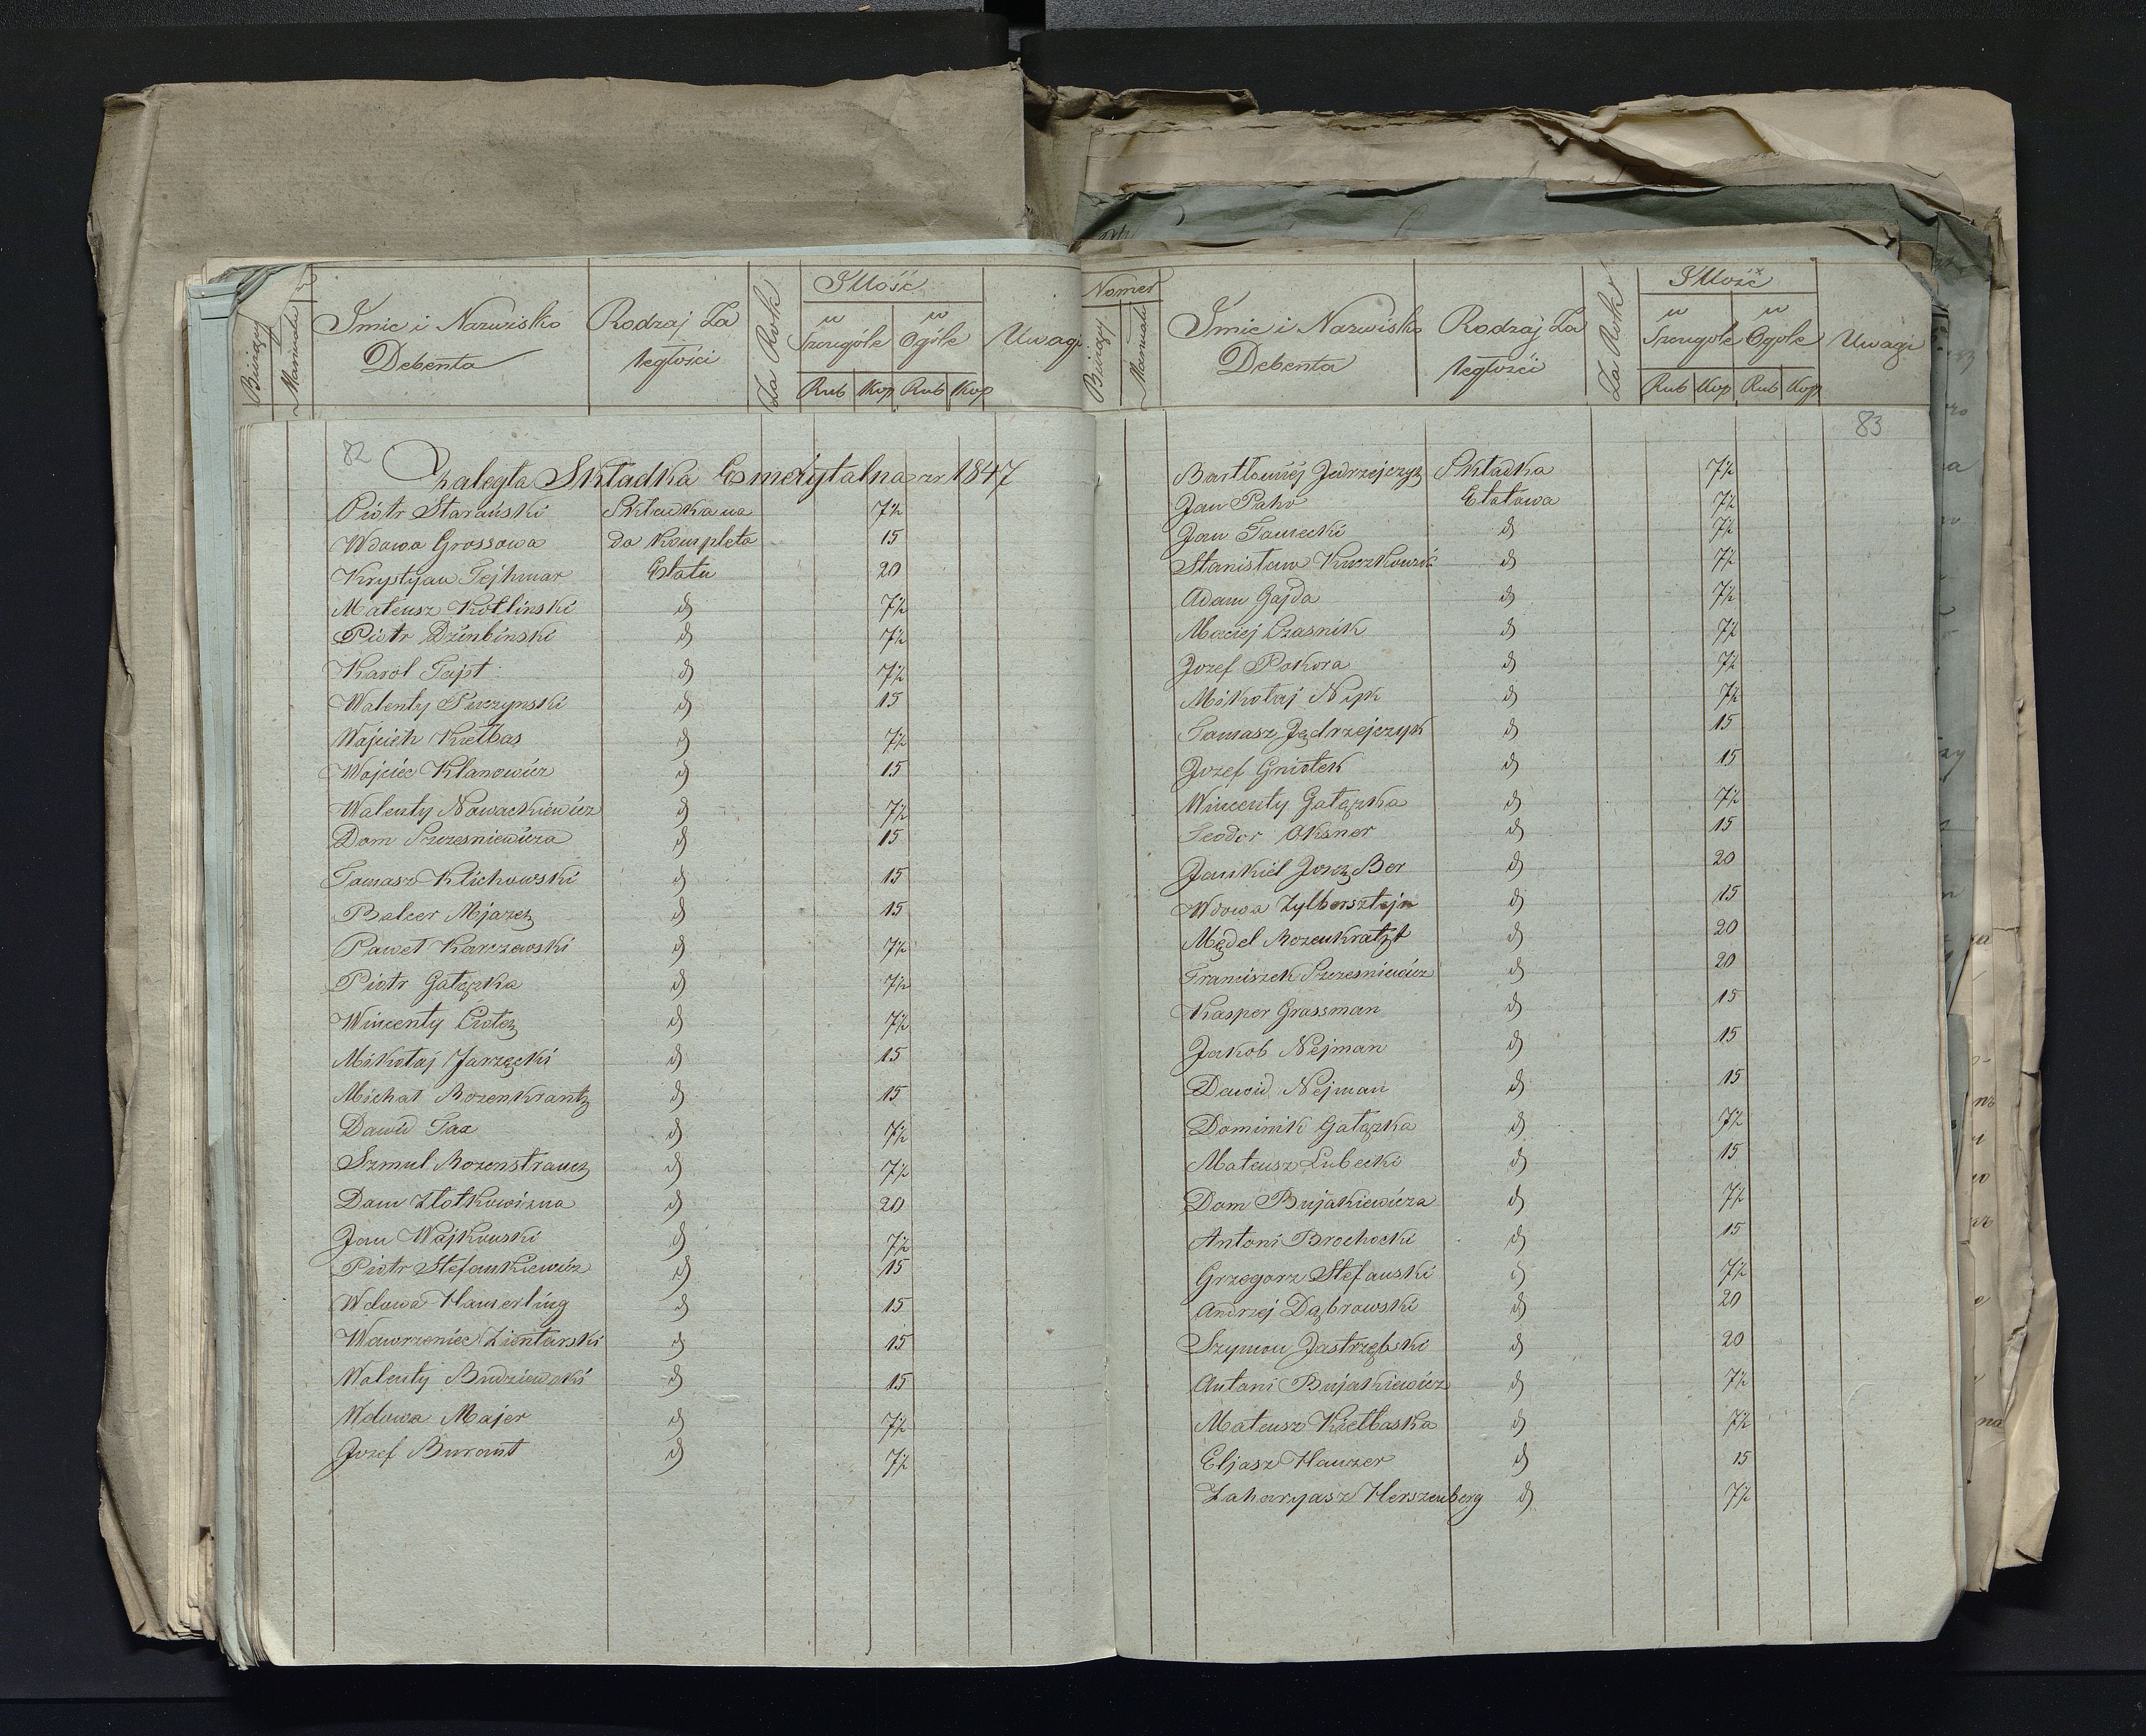 Bieżący
Manuału
Imie i Nazwisko
Debenta
Rodzaj Za
ległości
Za Rok
Jllość
w
Szczególe
w
Ogóle
Rub Kop Rub Kop
Uwagi
82
Zaległa Składka Emerytalna zr 1847
Piotr Starański Składka na 7½
Wdowa Grossowa do Kompleta 15
Krystyan Tejhmar Etatu 20
Mateusz Kotlinski d 7½
Piotr Dzinbinski d 7½
Karol Tajst d 7½
Walenty Pinczynski d 15
Wojcieh Kiełbas d 7½
Wojciec Klanowicz d 15
Walenty Nowackiewicz d 7½
Dom Szczesniewicza d 15
Tomasz Klichowski d 15
Balcer Mjazez d 15
Paweł Karczewski d 7½
Piotr Gałązka d 7½
Wincenty Ciotez d 7½
Mikołaj Jarzęcki d 15
Michał Rozenkrantz d 15
Dawid Tax d 7½
Szmul Rozenstrauez d 7½
Dom Złotkowizna d 20
Jan Wajkowski d 7½
Piotr Stefankiewicz d 15
Wdowa Hamerling d 15
Wawrzeniec Zientarski d 15
Walenty Budziewski d 15
Wdowa Majer d 7½
Jozef Burant d 7½
Nomer
Bieżący
Manuału
Imie i Nazwisko
Debenta
Rodzaj Za
ległości
Za Rok
Jllość
w
Szczególe
w
Ogóle
Rub Kop Rub Kop
Uwagi
83
Bartłomiej Jędrzejczyz Składka 7½
Jan Pako Etatowa 7½
Jan Taniecki d 7½
Stanisław Kuczkowić d 7½
Adam Gajda d 7½
Maciej Czasnik d 7½
Jozef Pokora d 7½
Mikołaj Nyk d 7½
Tomasz Jędrzejczyk d 15
Jozef Gniotek d 15
Wincenty Gałązka d 7½
Teodor Oksner d 15
Jankiel Josez Ber d 20
Wdowa Zylbersztejn d 15
Mędel Rozenkratzt d 20
Franciszek Szczesniewicz d 20
Kasper Grassman d 15
Jakob Nejman d 15
Dawid Nejman d 15
Dominik Gałązka d 7½
Mateusz Lubecki d 15
Dom Bujakiewicza d 7½
Antoni Brochocki d 15
Grzegorz Stefanski d 7½
Andrzej Dąbrowski d 20
Szymon Jastrzębski d 20
Antoni Bujakiewicz d 7½
Mateusz Kiełbaska d 7½
Eljasz Hauzer d 15
Zaharyasz Herszenberg d 7½